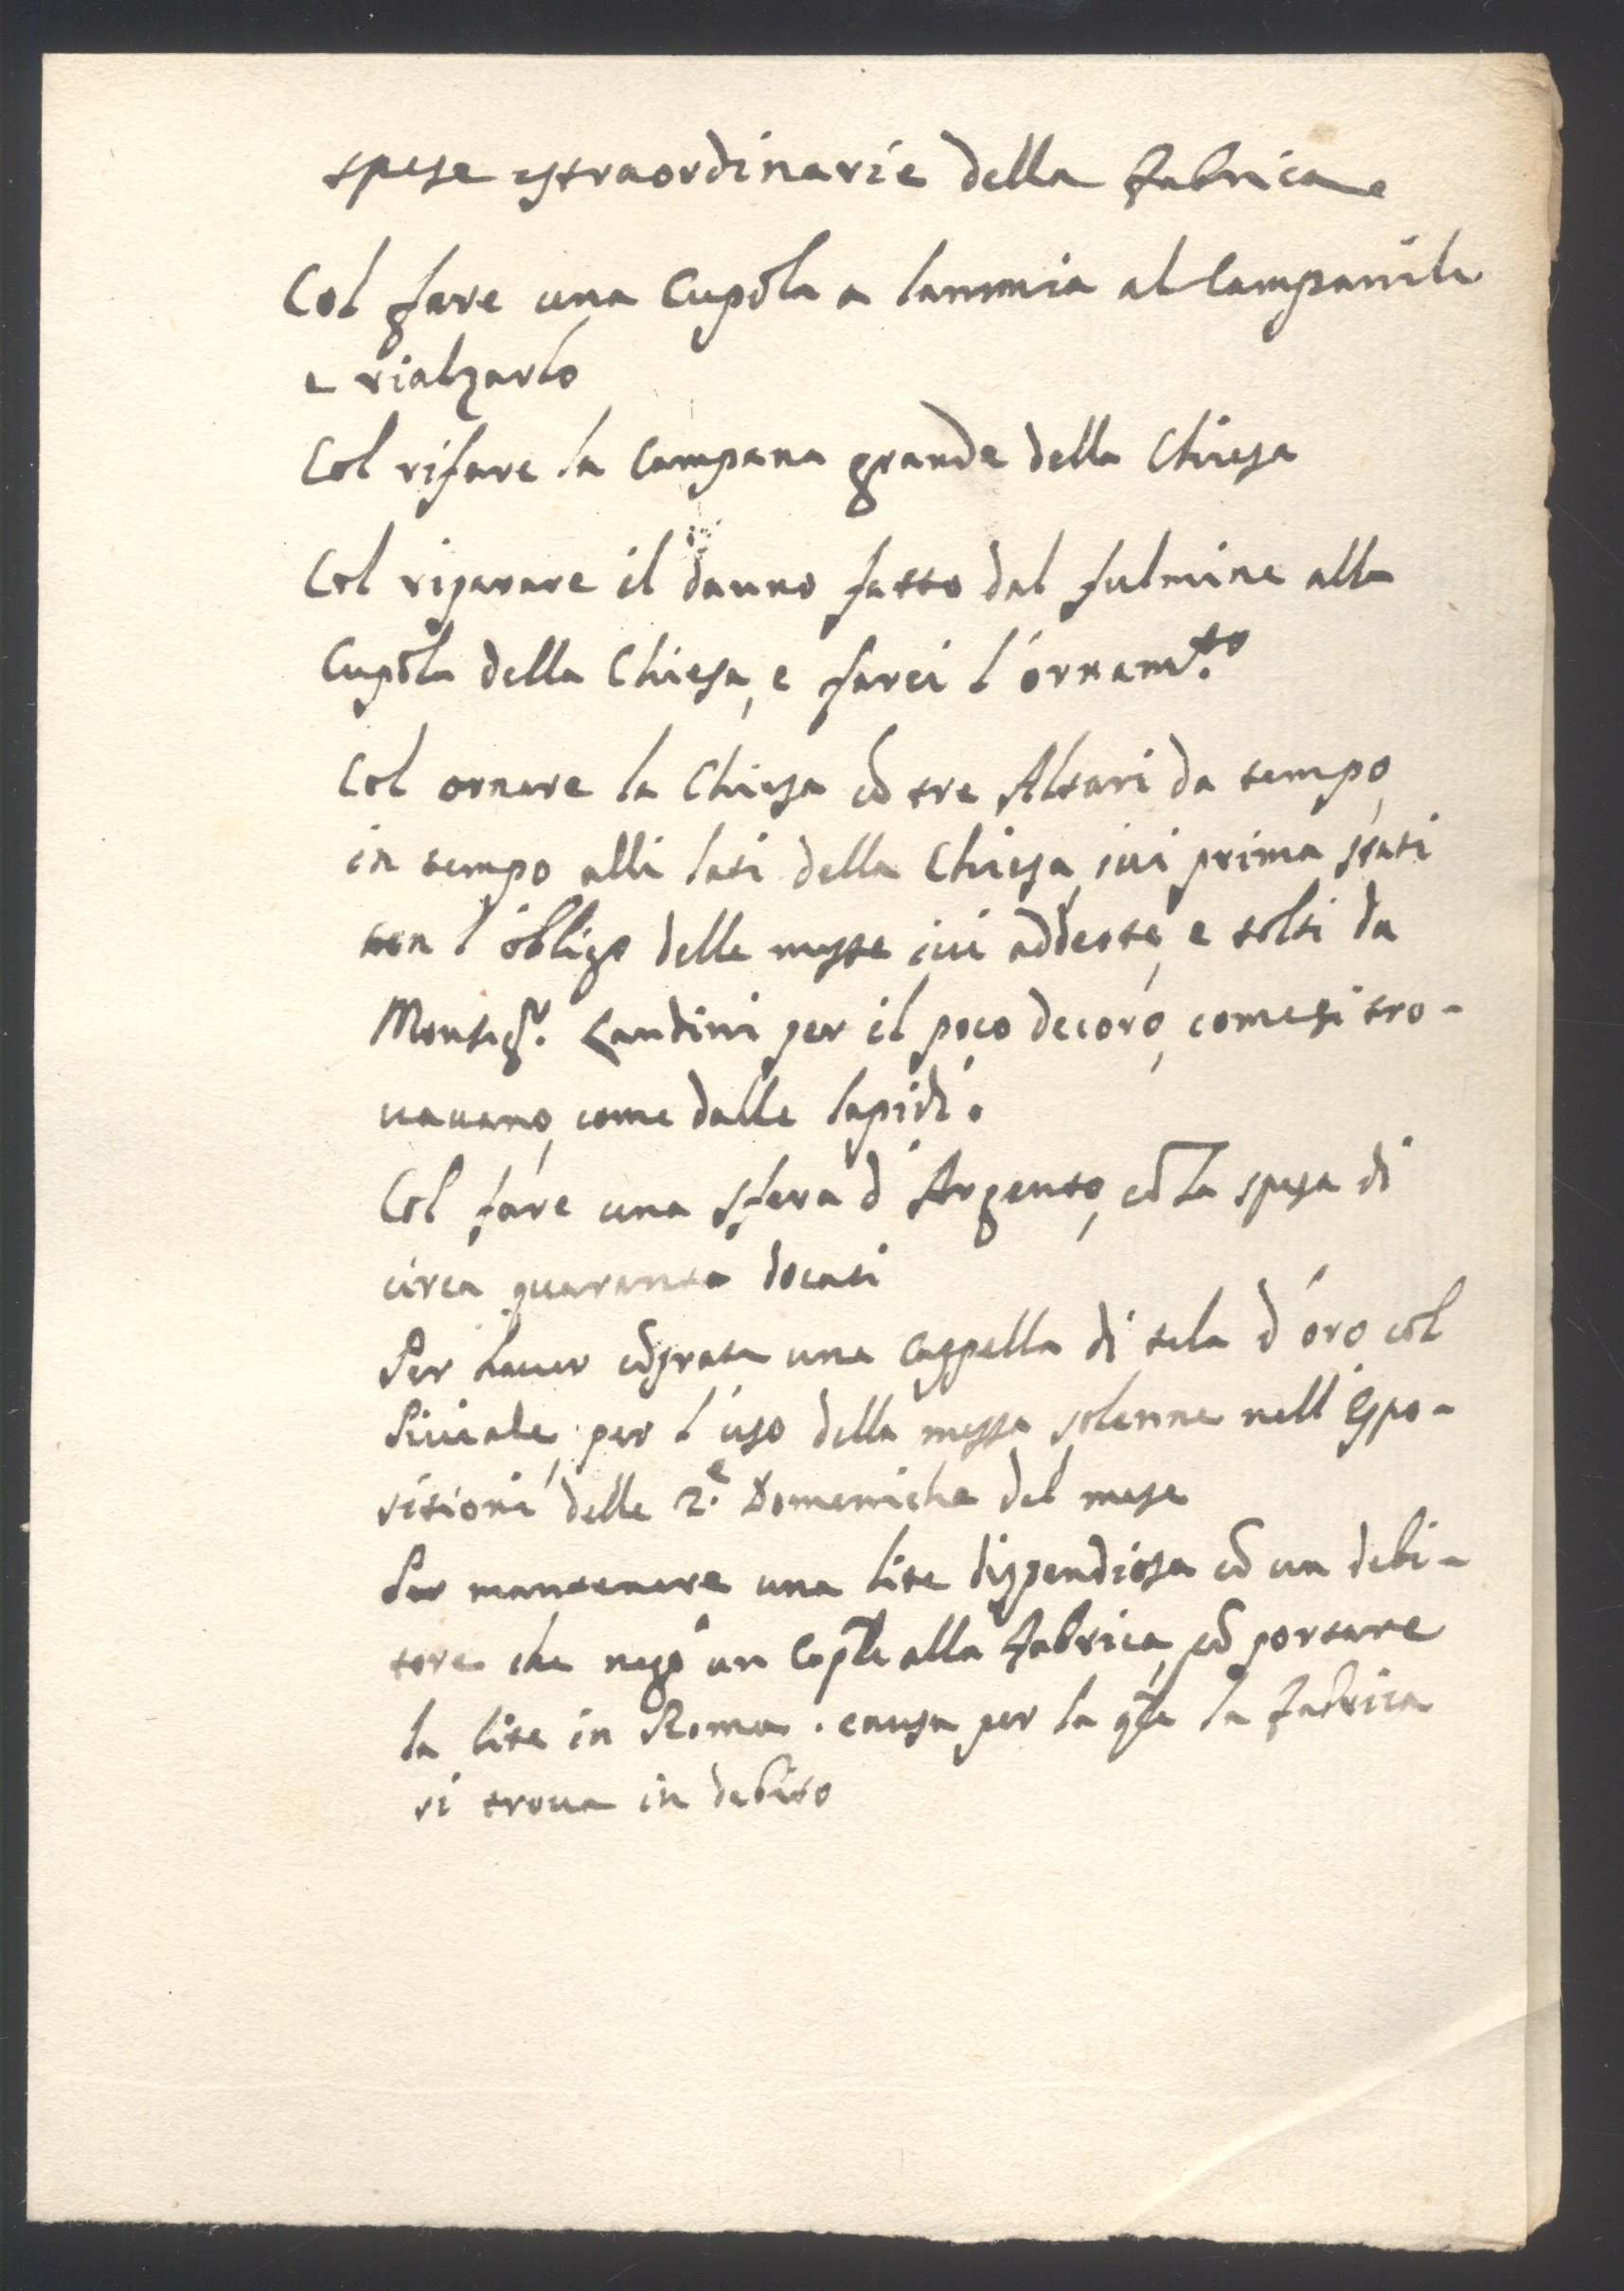 spese estraordinarie della fabrica
Col fare una Cupola a lammia al Campanile
e rialzarlo
Col rifare la Campana grande della Chiesa
Col riparare il danno fatto dal fulmine alla
Cupola della Chiesa, e farci l'ornam.to
Col ornare la Chiesa cō tre Altari da tempo,
in tempo alli lati della Chiesa, iui prima stati
con l'obligo delle messe iui addette, e tolti da
Monsig.r Landini per il poco decoro, come si tro-
uauano, come dalle lapidi.
Col fare una sfera d'Argento, cō la spesa di
circa quaranta docati
Per hauer cōprata una Cappella di tela d'oro col
Piuiale, per l'uso della messa solenne nell'Espo-
sitioni delle 2.e Domeniche del mese
Per mantenere una lite dispendiosa cō un debi-
tore che negò un cap̄le alla fabrica, cō portare
la lite in Roma. causa per la q̄le la fabrica
si troua in debito